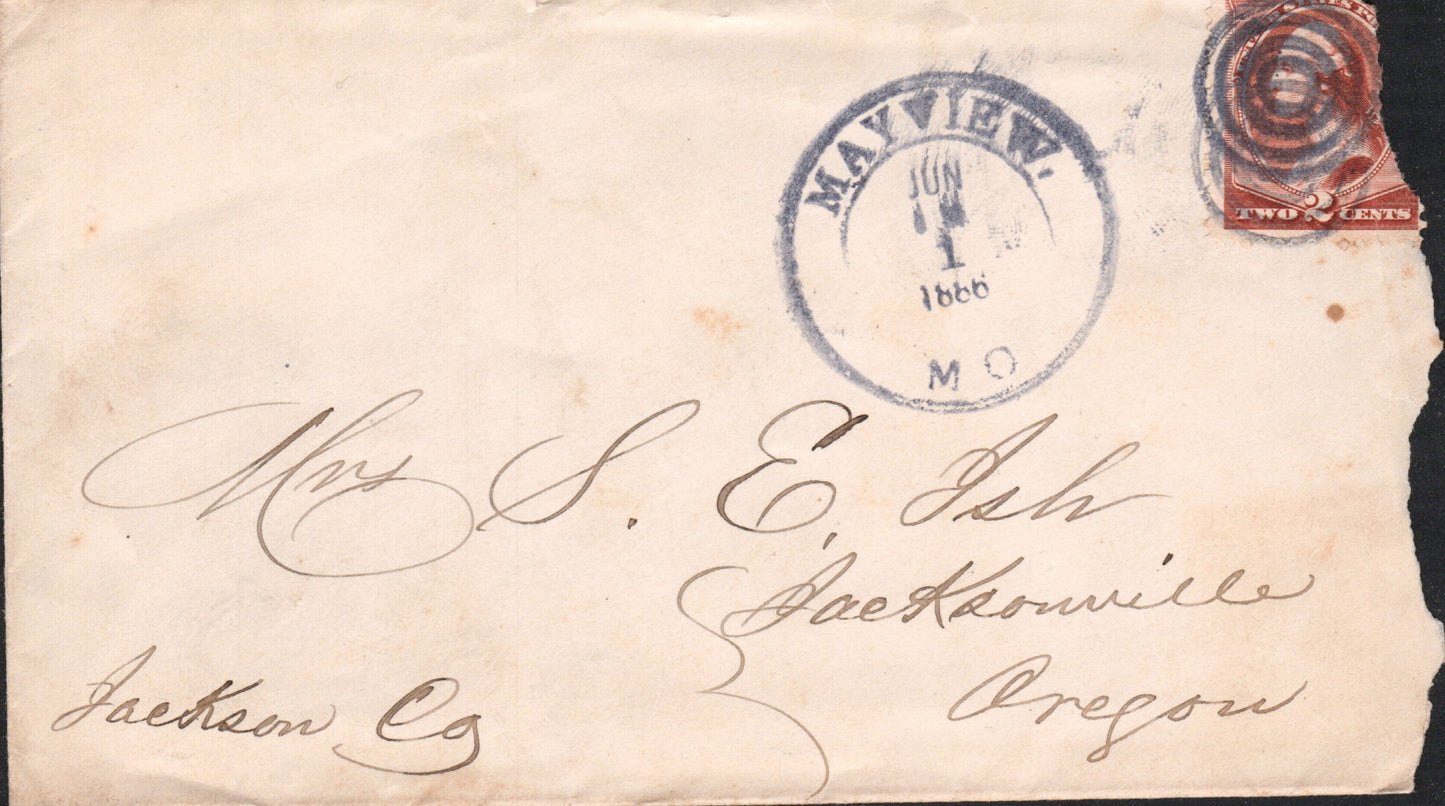 MAYVIEW.
JUN
1
MO
TWO 2 CENTS
Mrs S. E. Ish
Jacksonville
Oregon
Jackson Co